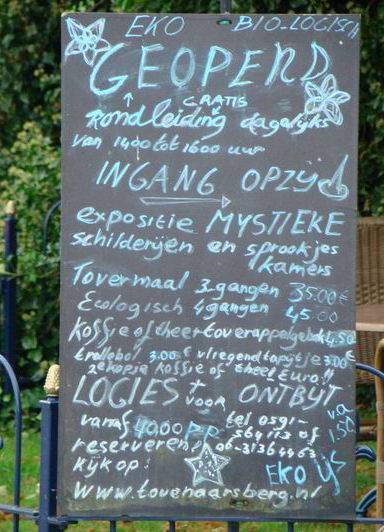 EKO BIO-LOGISCH
GEOPEND
GRATIS
Rondleiding dagelijks
van 1400 tot 1600 uur
INGANG OPZIJ
expositie MYSTIEKE
schilderijen en sprookjes
kamers
Tovermaal 3.gangen 35.00€
Ecologisch 4gangen 45.00
koffie of thee+toverappelgebak 4.50
trollebol 3.00€ vliegend tapijtje 3.00€
2e kopje koffie of thee 1euro!!
LOGIES + ONTBIJT
voor v.a
vanaf 4000 P.P. tel 0591- 1,50
564113 of
reserveren 06-31364463
kijk op: EKO IJS
www.tovenaarsberg.nl